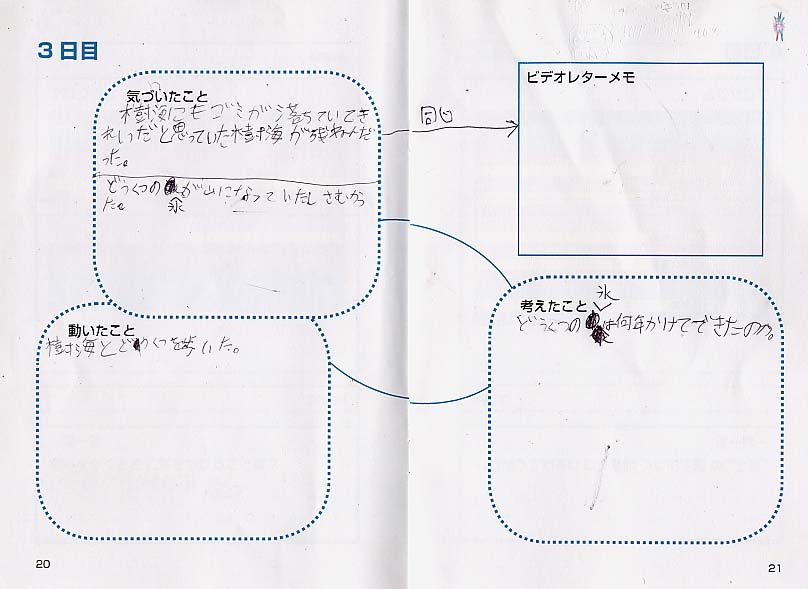 3日目
気づいたこと
樹海にもゴミが落ちていてき
れいだと思っていた樹海が残ねんだ
った。
どうくつの氷が山になっていたしさむかっ
た。
動いたこと
樹海とどうくつを歩いた。
20
同じ
ビデオレターメモ
考えたこと
どうくつの氷は何年かけてできたのか。
21